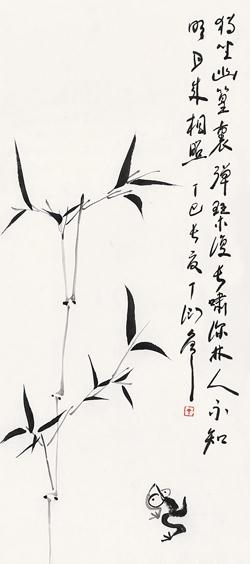 独坐幽篁裏弹琴復长啸深林人不知
明月来相照丁巳长夏丁衍庸